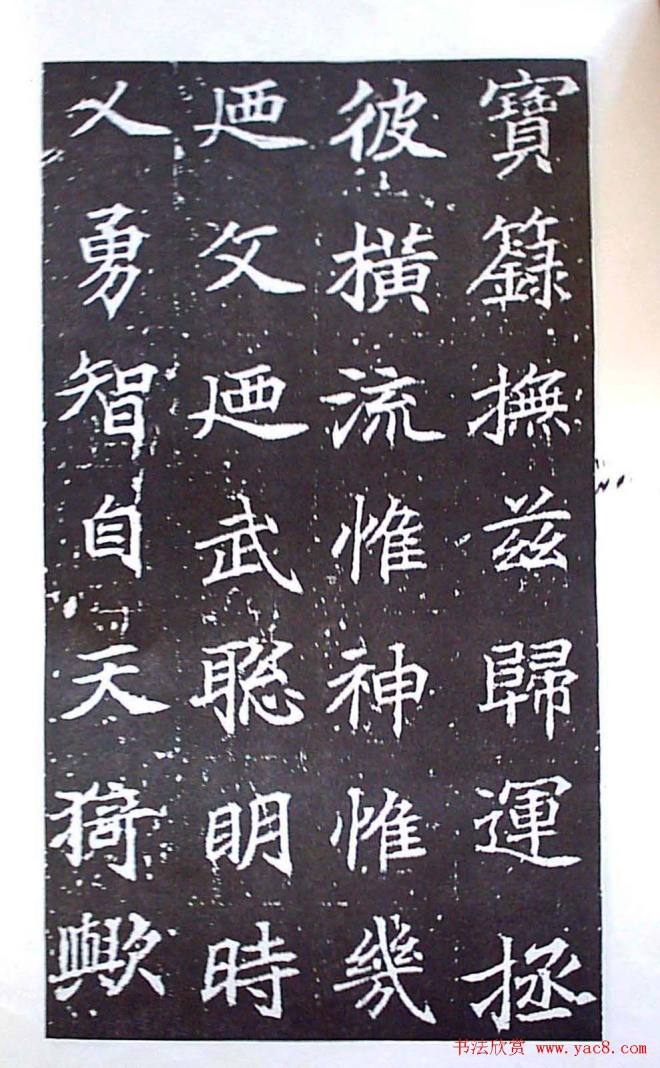 寶籙撫茲歸運拯
彼橫流惟神惟幾
廼文廼武聡明時
乂勇智自天猗歟
书法欣赏 www.yac8.com